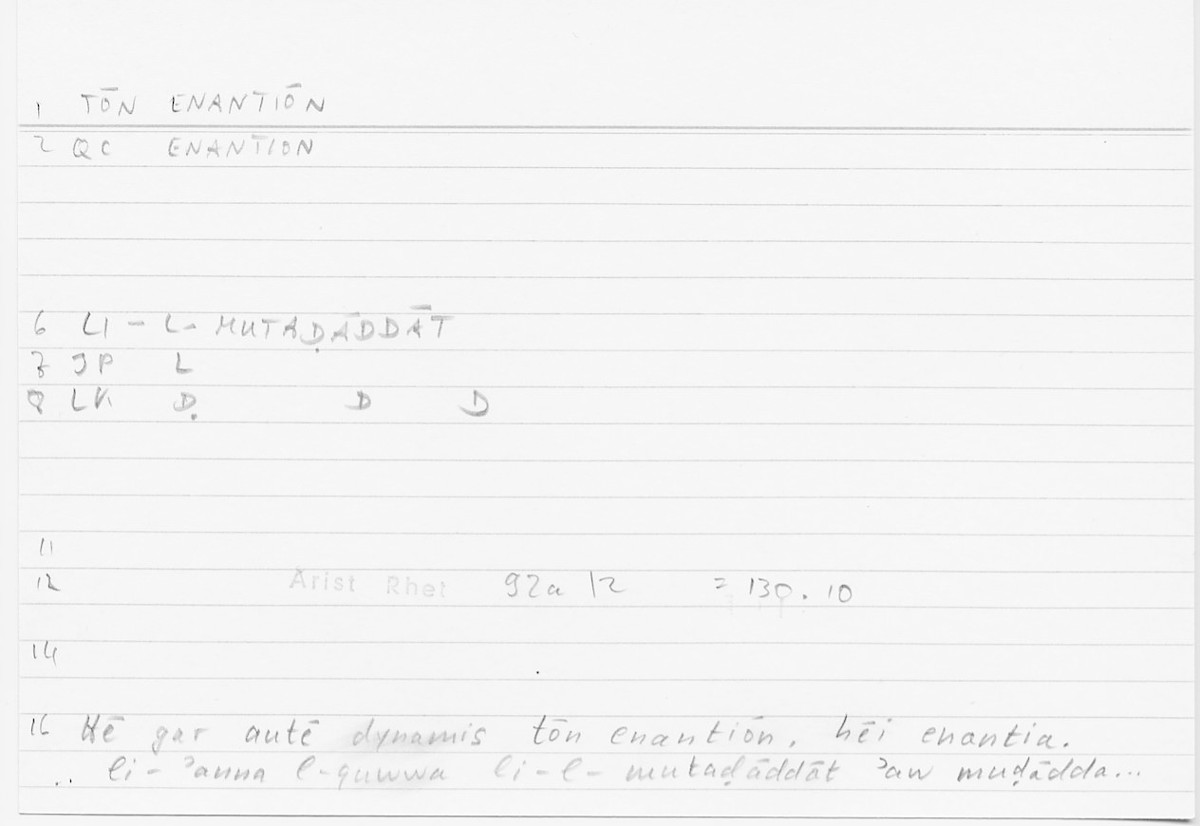 1 TŌN ENANTIŌN
2 QC ENANTION
6 LI-L-MUTAḌĀDDĀT
7 JP L
8 LK Ḍ D D
11
12 Arist Rhet 92a 12 = 130. 10
14
16 Hē gar autē dynamis tōn enantiōn, hēi enantia.
.. li-ʾanna l-quwwa li-l-mutaḍāddāt ʾaw muḍādda...